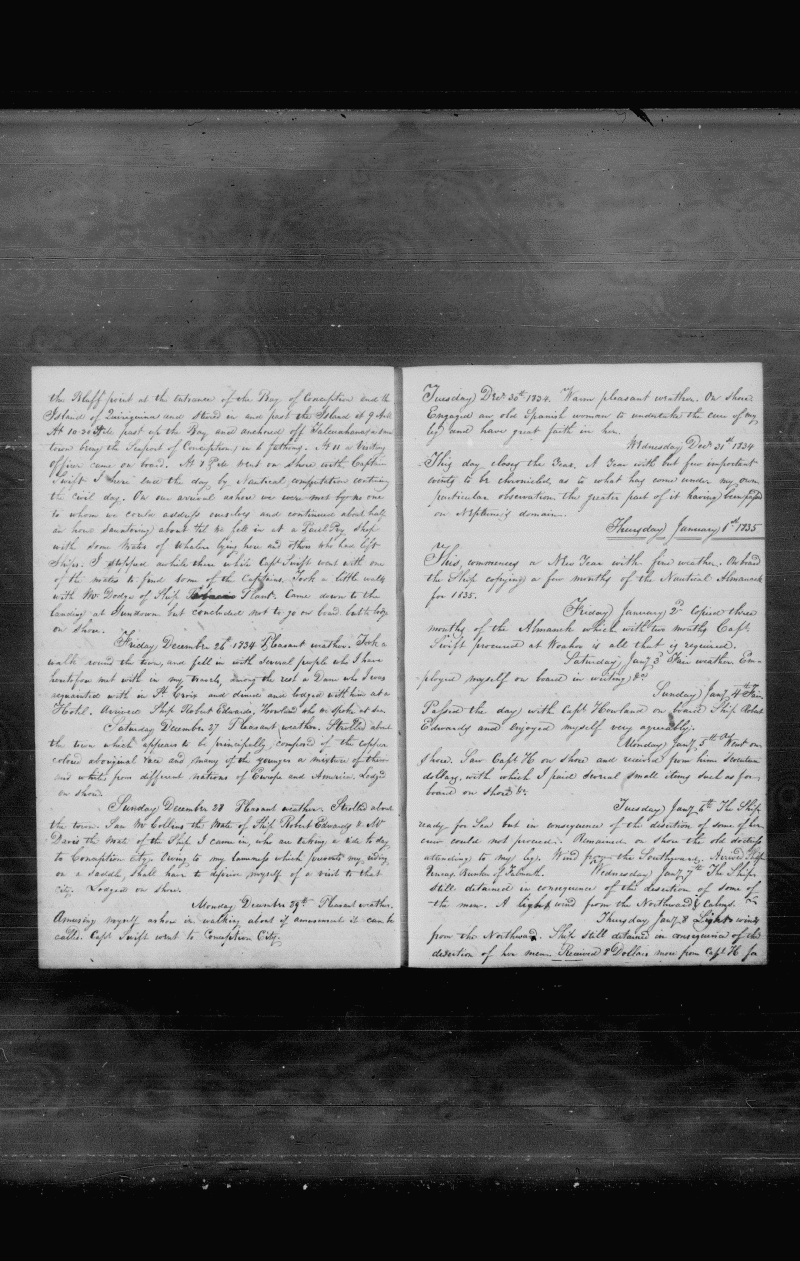 the Bluff point at the entrance of the Bay of Conception and the
Island of Quiriquina and stood in and past the Island at 9 A M.
At 10.30 A M past up the Bay and anchored off Talcuahana, a small
town being the Seaport of Conception, in 6 fathoms. At 11 a Visiting
officer came on board. At 1 P M went on shore with Captain
Swift. I here end the day by Nautical computation continuing
the civil day. On our arrival ashore we were met by no one
to whom we could address ourselves and continued about half
an hour sauntering about till we fell in at a Paul Pry Shop
with some Mates of Whalers lying here and others who had left
Ships. I stopped awhile there while Capt Swift went with one
of the mates to find some of the Captains. Took a little walk
with Mr Dodge of Ship Plant. Came down to the
landing at Sundown but concluded not to go on board but to lodge
on shore.
Friday December 26th 1834 Pleasant weather. Took a
walk round the town, and fell in with several people who I have
heretofore met with in my travels, among the rest a Dane who I was
acquainted with in St Croix and dined and lodged with him at a
Hotel. Arrived Ship Robert Edwards, Howland who we spoke at sea.
Saturday December 27 Pleasant weather. Strolled about
the town which appears to be principally composed of the copper
colored aboriginal race and many of the younger a mixture of them
and whites from different nations of Europe and America. Lodg'd
on shore.
Sunday December 28 Pleasant weather. Strolled about
the town. Saw Mr Collins the Mate of Ship Robert Edwards & Mr
Davis the Mate of the Ship I came in, who are taking a ride to day
to Conception City. Owing to my lameness which prevents my riding
on a saddle, shall have to deprive myself of a visit to that
City. Lodged on shore.
Monday December 29th Pleasant weather.
Amusing myself ashore in walking about if amusement it can be
called. Capt Swift went to Conception City.
Tuesday Decr 30th 1834. Warm pleasant weather. On shore.
Engaged an old Spanish woman to undertake the cure of my
leg and have great faith in her.
Wednesday Decr 31st 1834
This day closes the Year. A Year with but few important
events to be chronicled, as to what has come under my own
particular observation the greater part of it having been passed
on Neptune's domain.
Thursday January 1st 1835
This, commences a New Year with fine weather. On board
the Ship copying a few months of the Nautical Almanack
for 1835.
Friday January 2d Copied three
months of the Almanck which with two months Capt.
Swift procured at Woahoo is all that is required.
Saturday Jany 3d Fair weather. Em-
ployed myself on board in writing &c
Sunday Jany 4th Fair.
Passed the day with Capt Howland on board Ship Robert
Edwards and enjoyed myself very agreeably.
Monday Jany 5th Went on
shore. Saw Capt H on shore and received from him seventeen
dollars, with which I paid several small items such as for
board on shore &c.
Tuesday Jany 6th The Ship
ready for Sea but in consequence of the desertion of some of her
crew could not proceed. Remained on shore the old doctress
attending to my leg. Wind from the Southward. Arrived Ship
of Falmouth. Wednesday Jany 7th The Ship
still detained in consequence of the desertion of some of
the men. A light wind from the Northward & Calms.
Thursday Jany 8 Light winds
from the Northward. Ship still detained in consequence of the
desertion of her men. Received 8 Dollars more from Capt H for